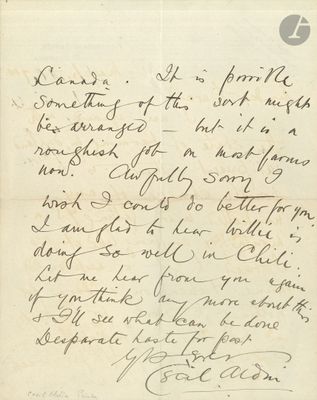 Canada. It is possible
something of this sort might
be arranged — but it is a
roughish job on most farms
now. Awfully sorry I
wish I could do better for you.
I am glad to hear Willie is
doing so well in Chili.
Let me hear from you again
if you think any more about this
& I'll see what can be done
Desparate haste for post
Yrs ever
Cecil Aldin